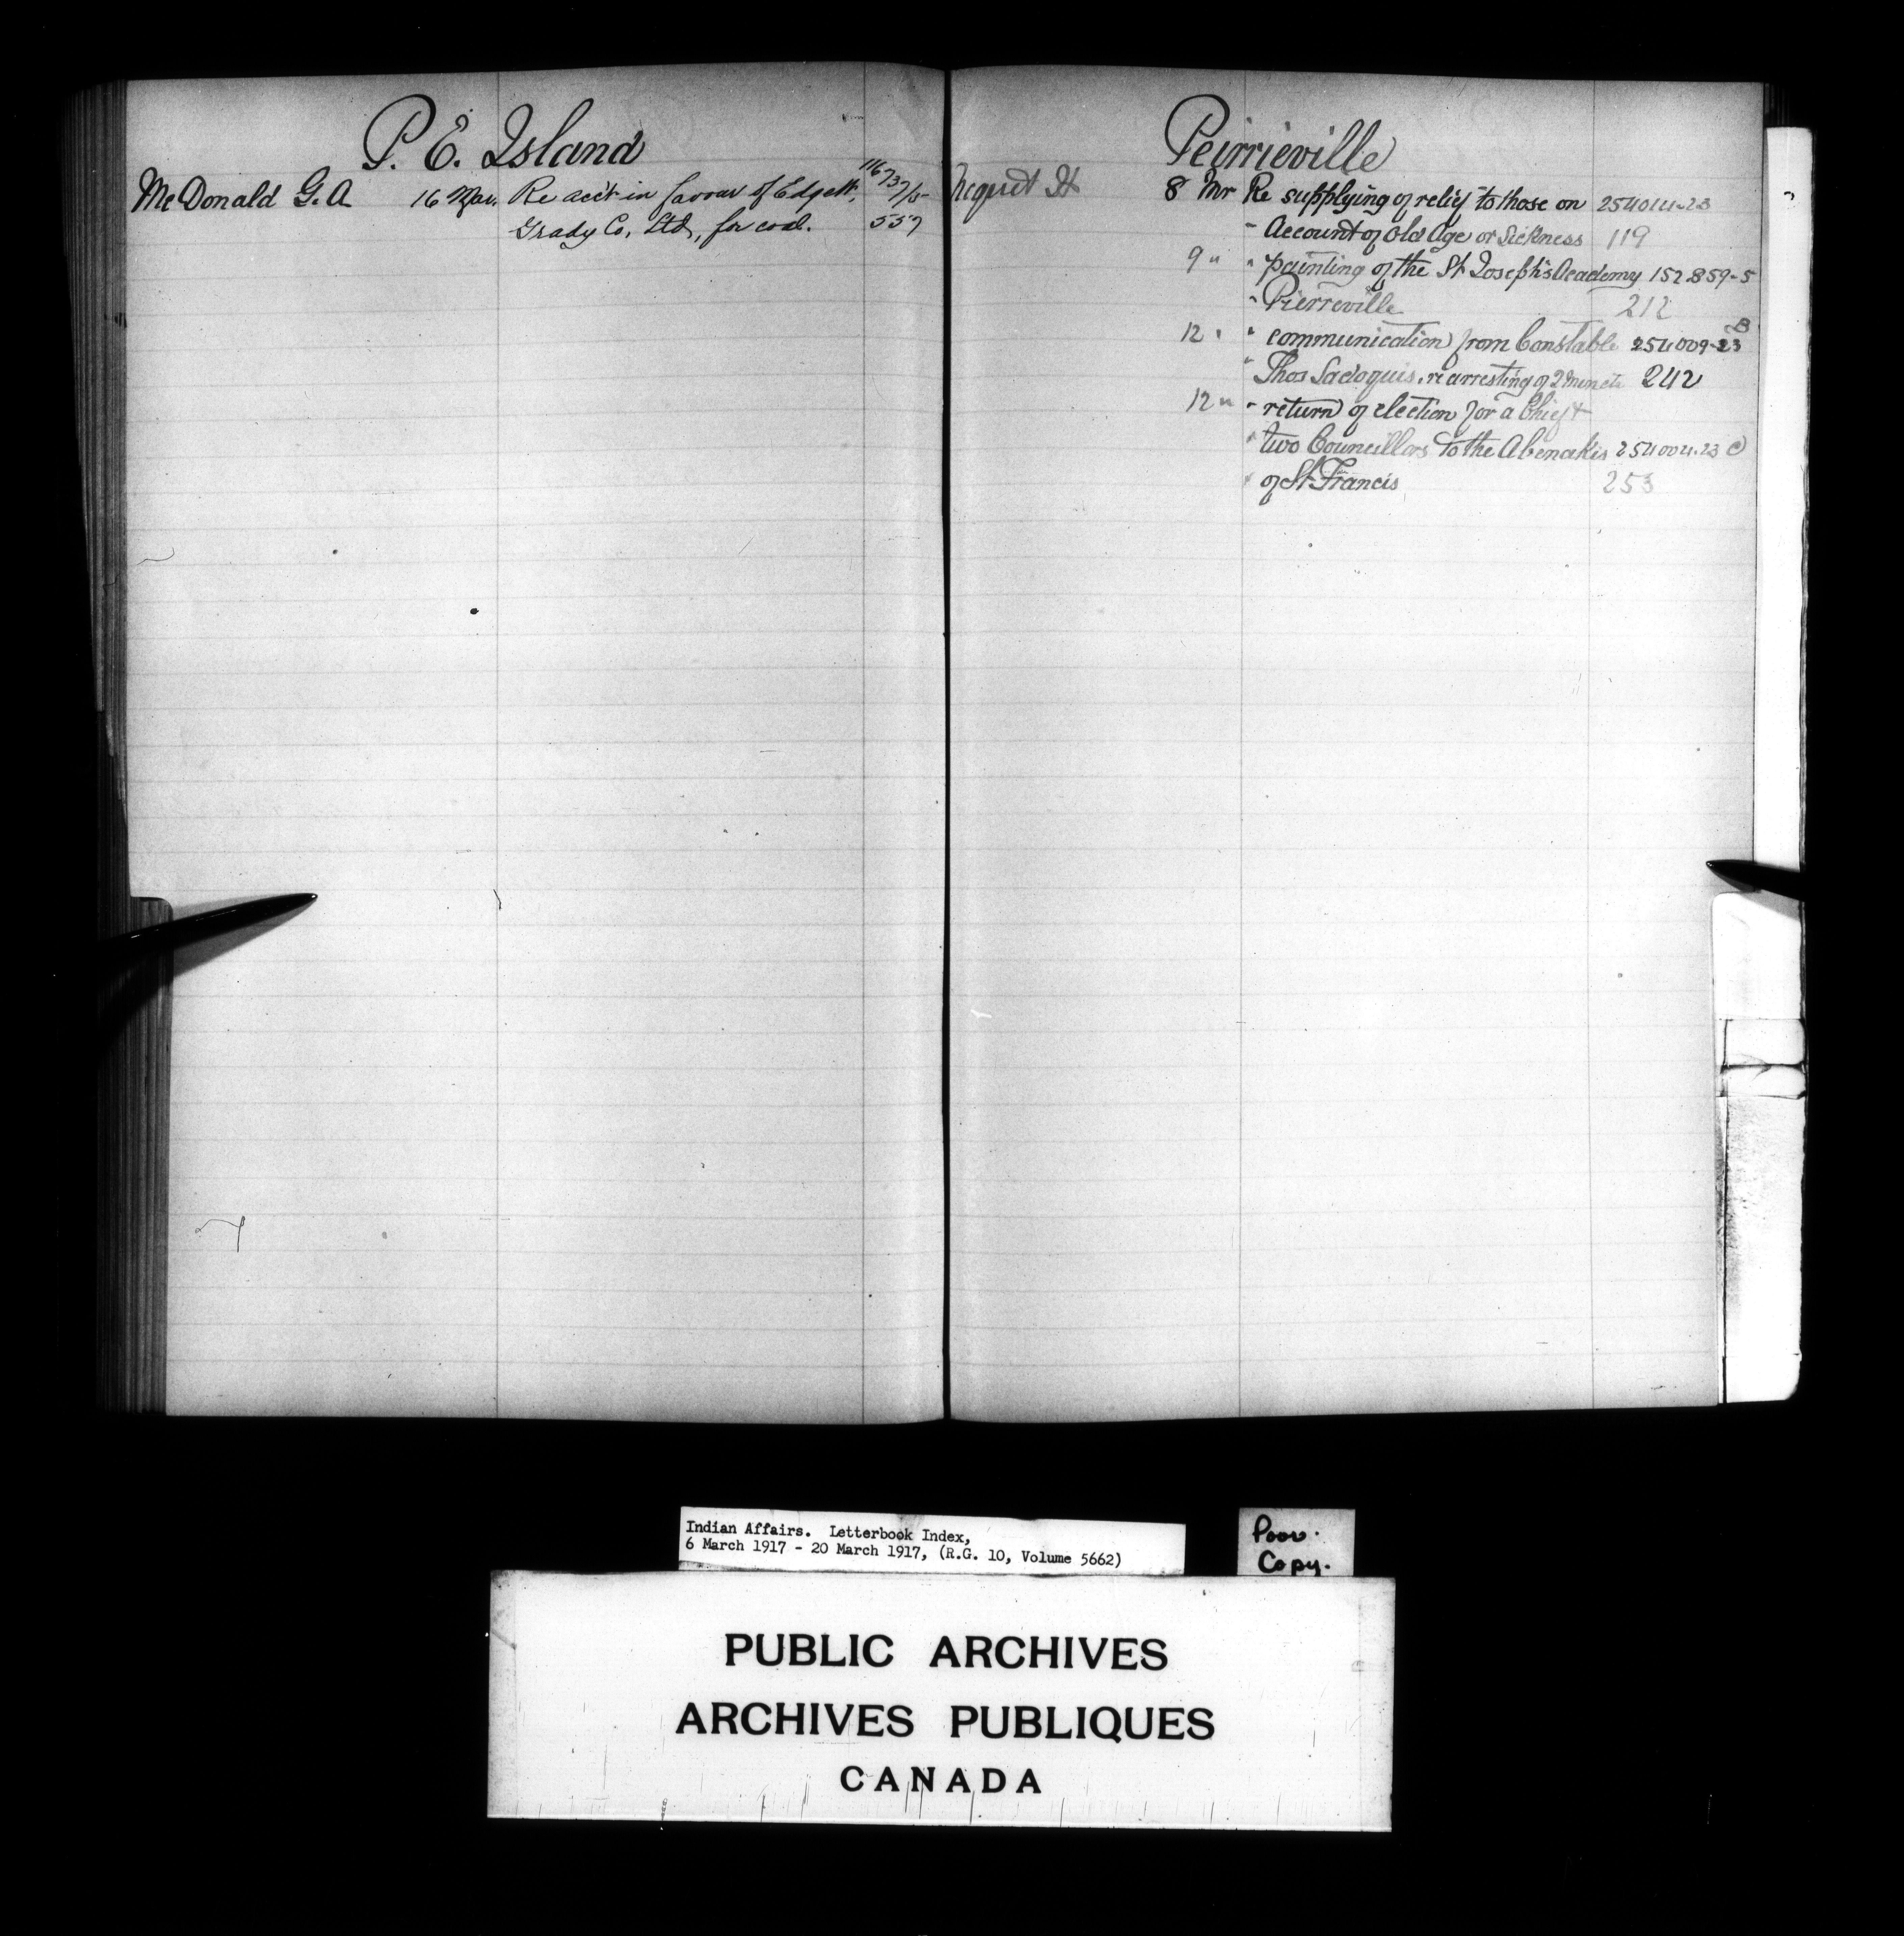 P. E. Island
McDonald G. A. 16 Mar. Re acc't in favour of Edgett, 116737/5
Grady Co. Ltd., for coal. 557
Peirrieville
H 8 Mr Re supplying of relief to those on 254014-23
" Account of Old Age or Sickness 119
9 " " painting of the St Joseph's Academy 152859-5
" Pierreville 212
12 " " communication from Constable 254009-23 B
" Thos Sadoquis, re arresting of 242
12 " " return of election for a Chief +
" two Councillors to the Abenakis 254004-23 C
" of St Francis 253
Indian Affairs. Letterbook Index,
6 March 1917 - 20 March 1917, (R.G. 10, Volume 5662)
Poor
Copy.
PUBLIC ARCHIVES
ARCHIVES PUBLIQUES
CANADA